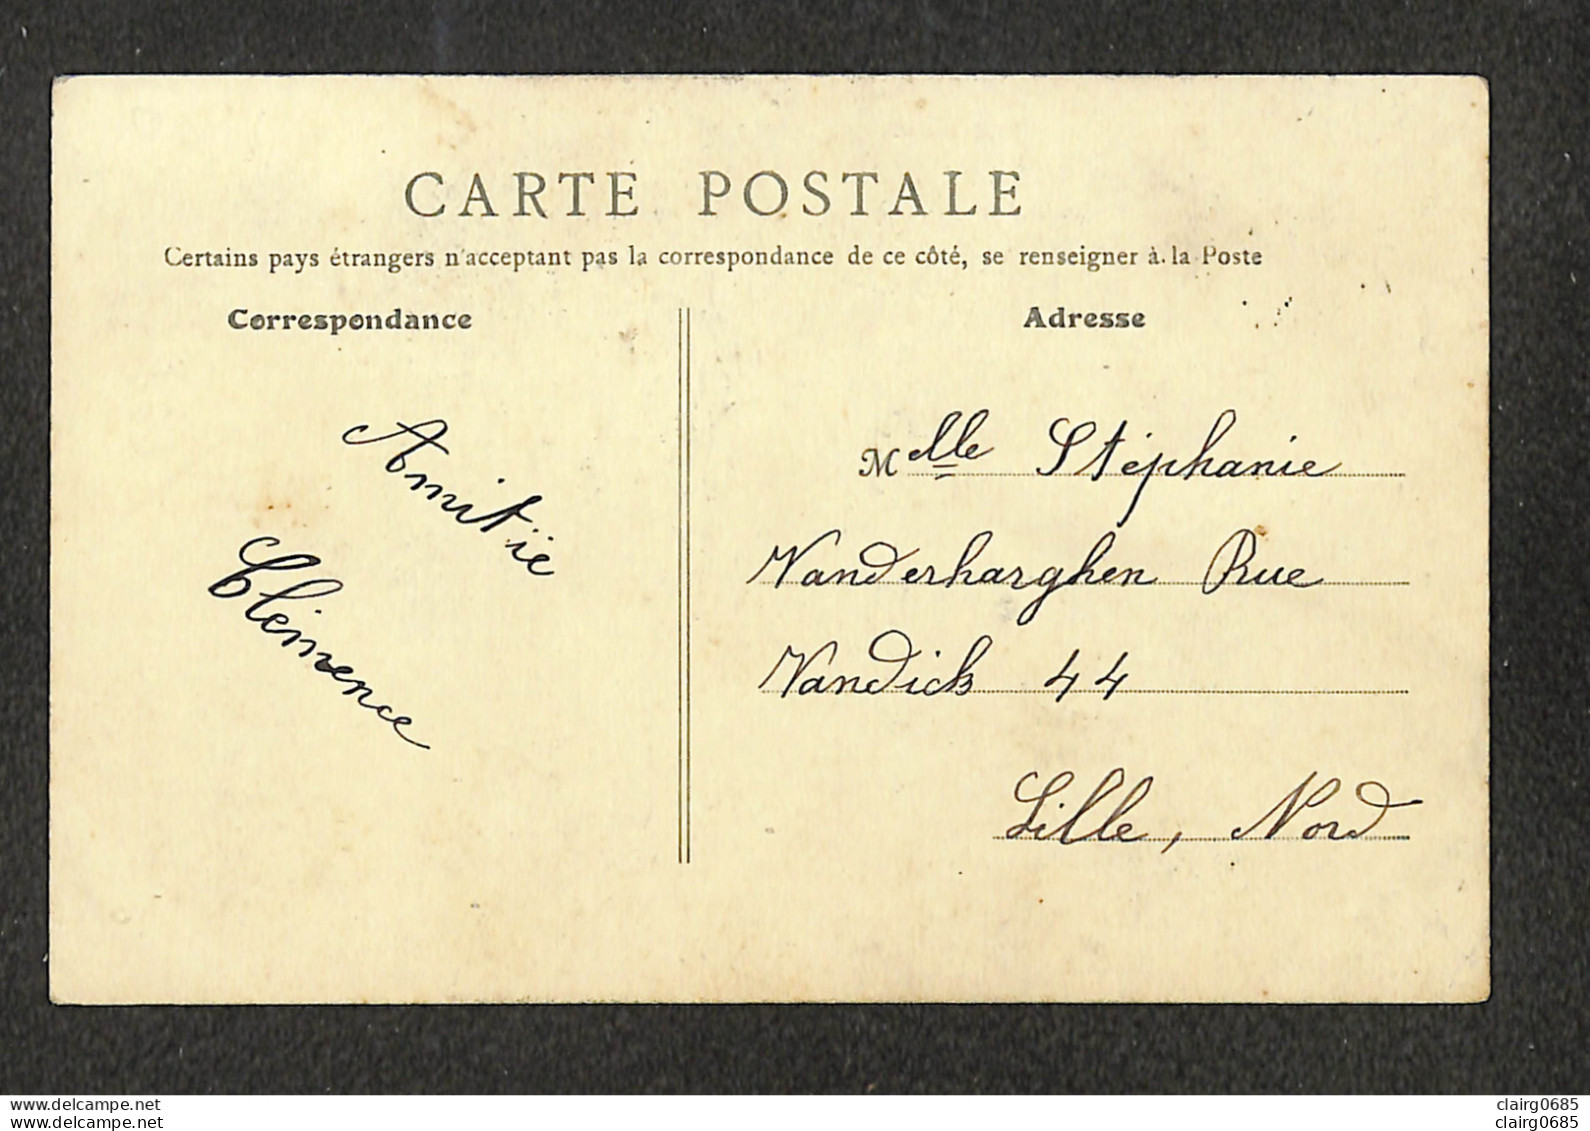 CARTE POSTALE
Certains pays étrangers n'acceptant pas la correspondance de ce côté, se renseigner à la Poste
Correspondance
Adresse
Amitié
Clémence
Melle Stéphanie
Vanderharghen Rue
Vandick 44
Lille, Nord
www.delcampe.net
www.delcampe.net
clairg0685
clairg0685